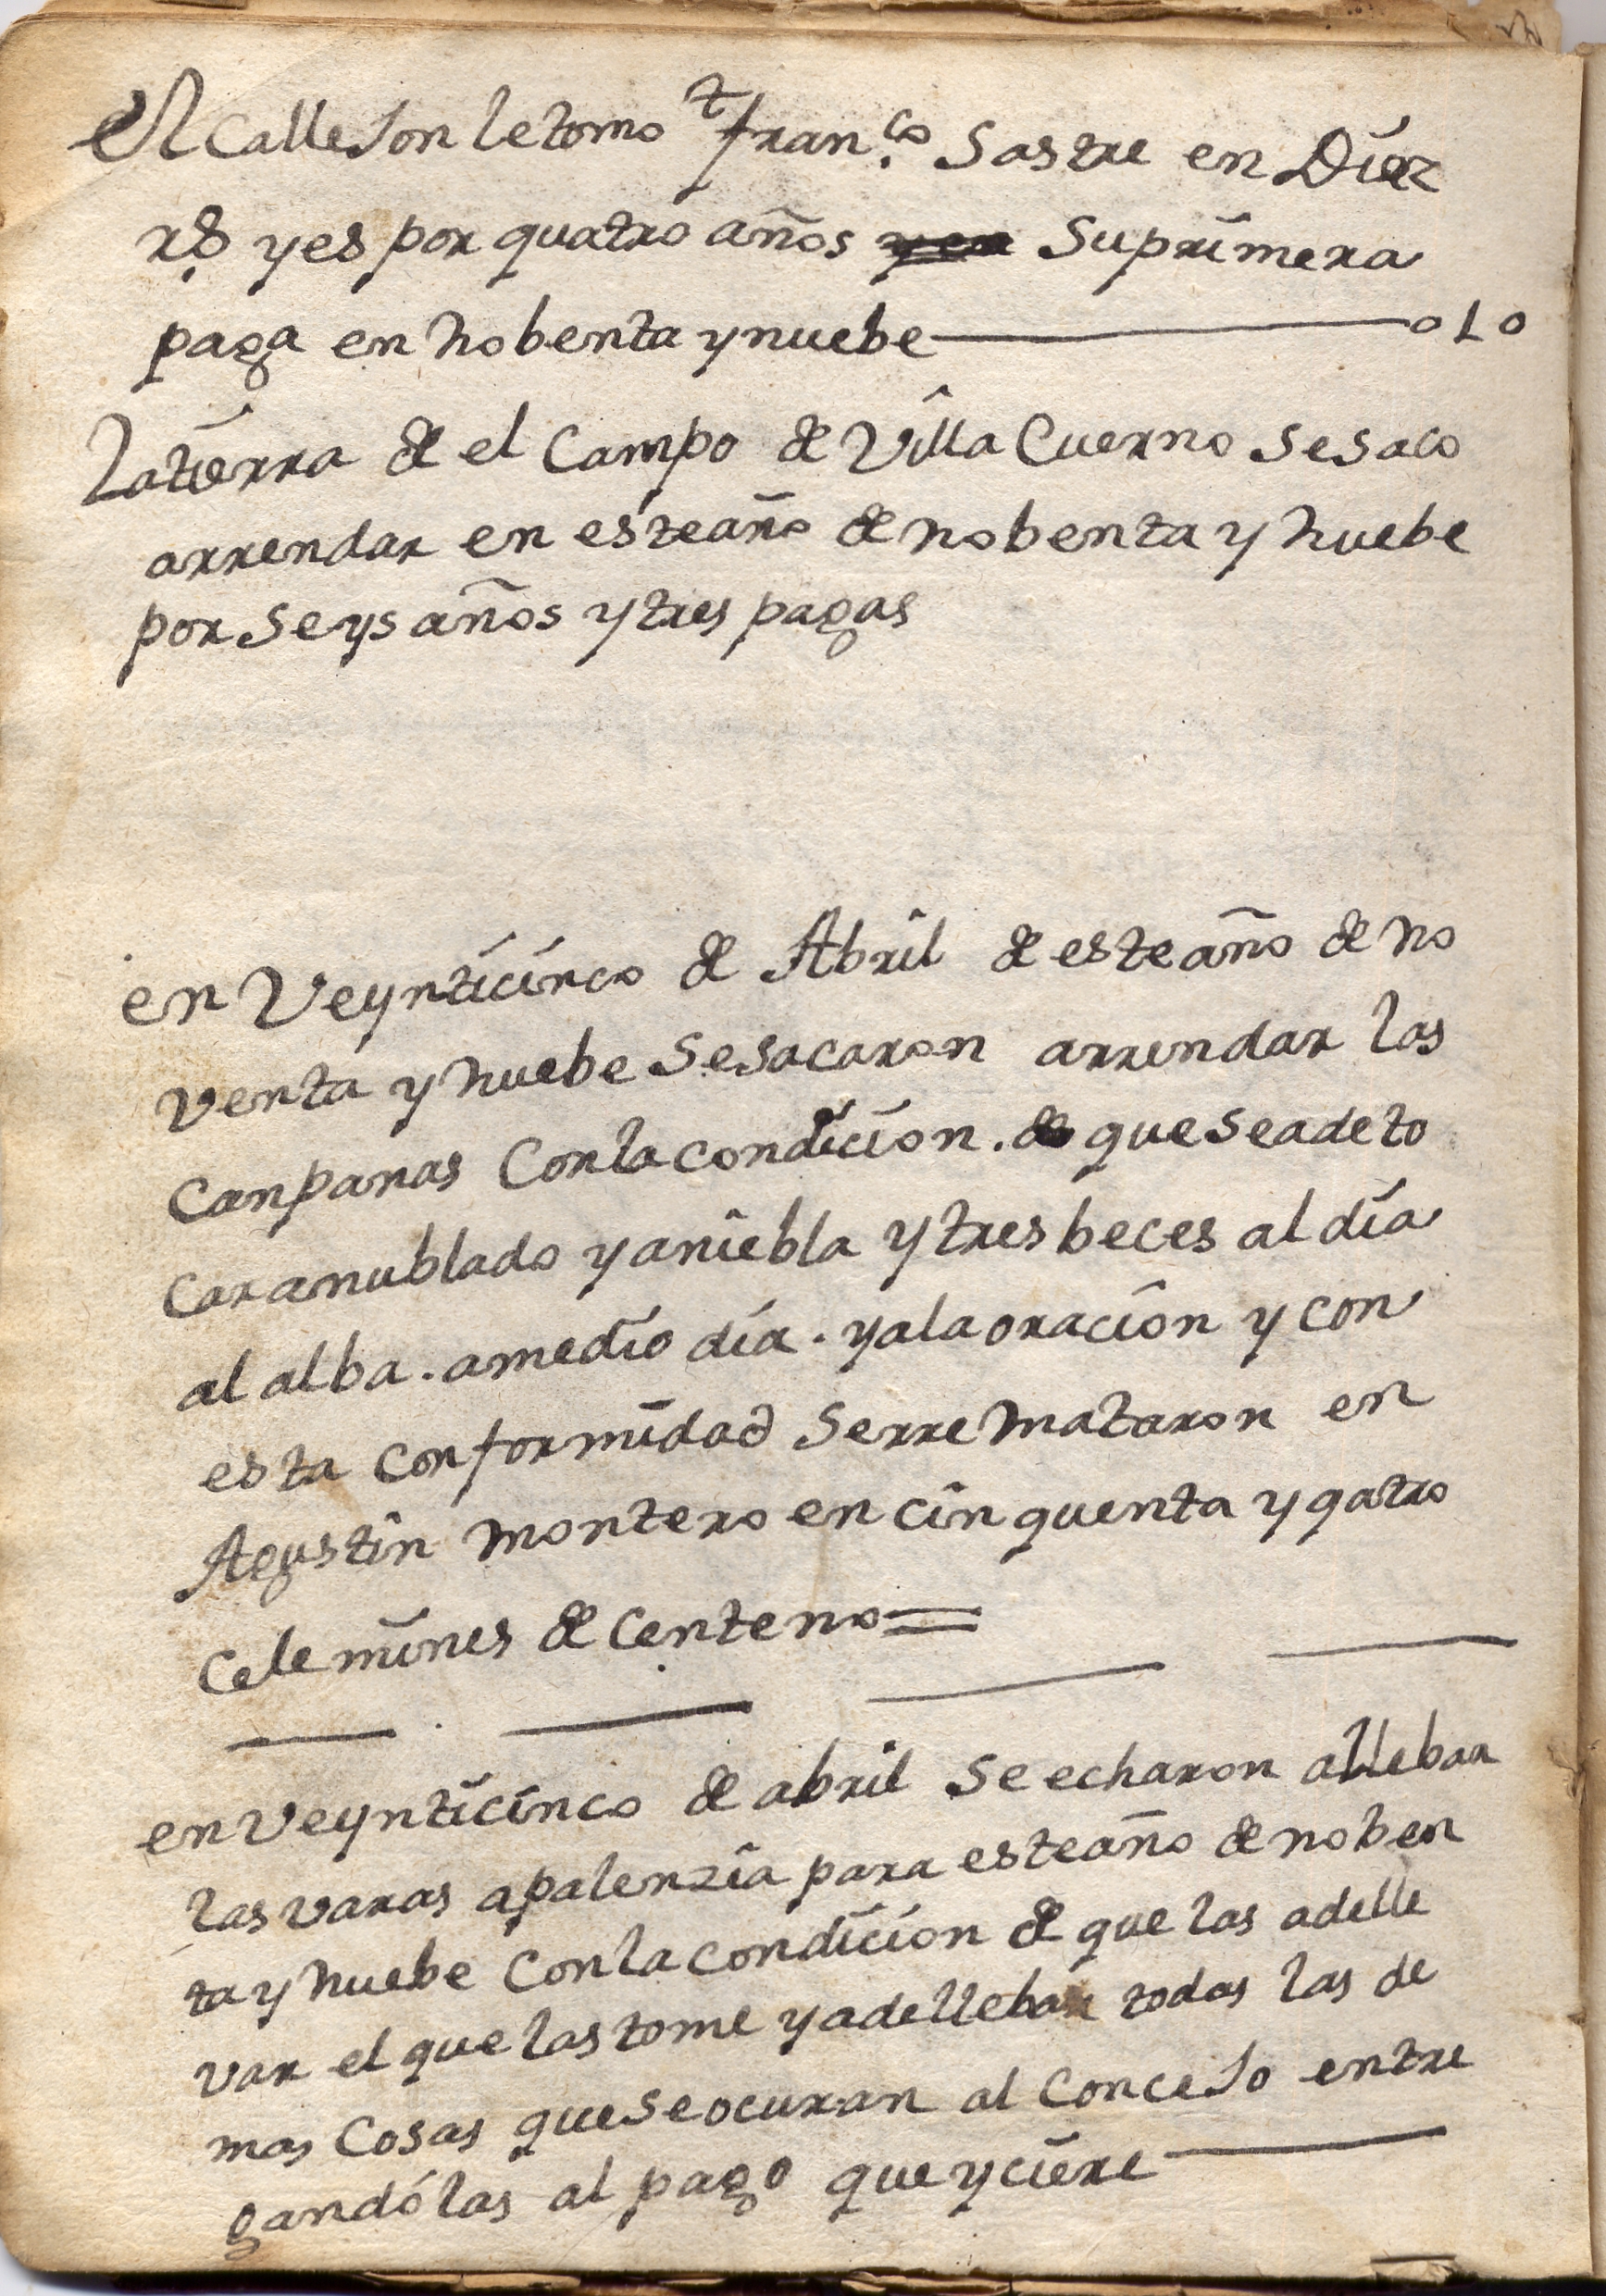 el calleJon le tomo t fran.co Sastre en Diez
rs yes por quatro años y en Suprimera
paga en nobenta y nuebe 010
La tierra de el Campo de Villa Cuerno se saco
arrendar en este año de nobenta y nuebe
por seys años y tres pagas
en Veynticinco de Abril de este año de no
venta y nuebe se sacaron arrendar las
Canpanas Con la condicion. de que se a de to
car a nublado y a niebla y tres beces al dia
al alba. a medio dia. y a la oracion y con
esta conformidad serrematazon en
Agustin Montero en cinquenta y qatro
celemines de Centeno
en Veynticinco de abril se echaron allebar
las varas a palenzia para este año de noben
ta y nuebe Con la condicion de que las a de lle
var el que las tome y a de llebar todas las de
mas Cosas que se ocuran al ConceJo entre
gandólas al pago que yciere